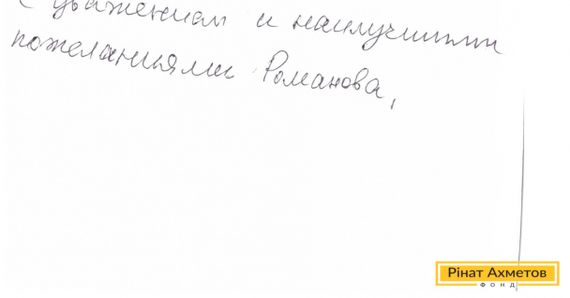 С уважением и наилучшими
пожеланиями Романова,
Рінат Ахметов
ФОНД